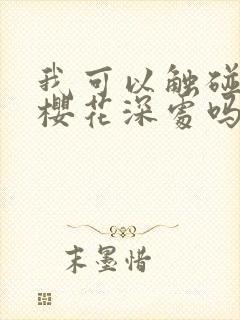 我可以触碰
樱花深处吗
末墨惜